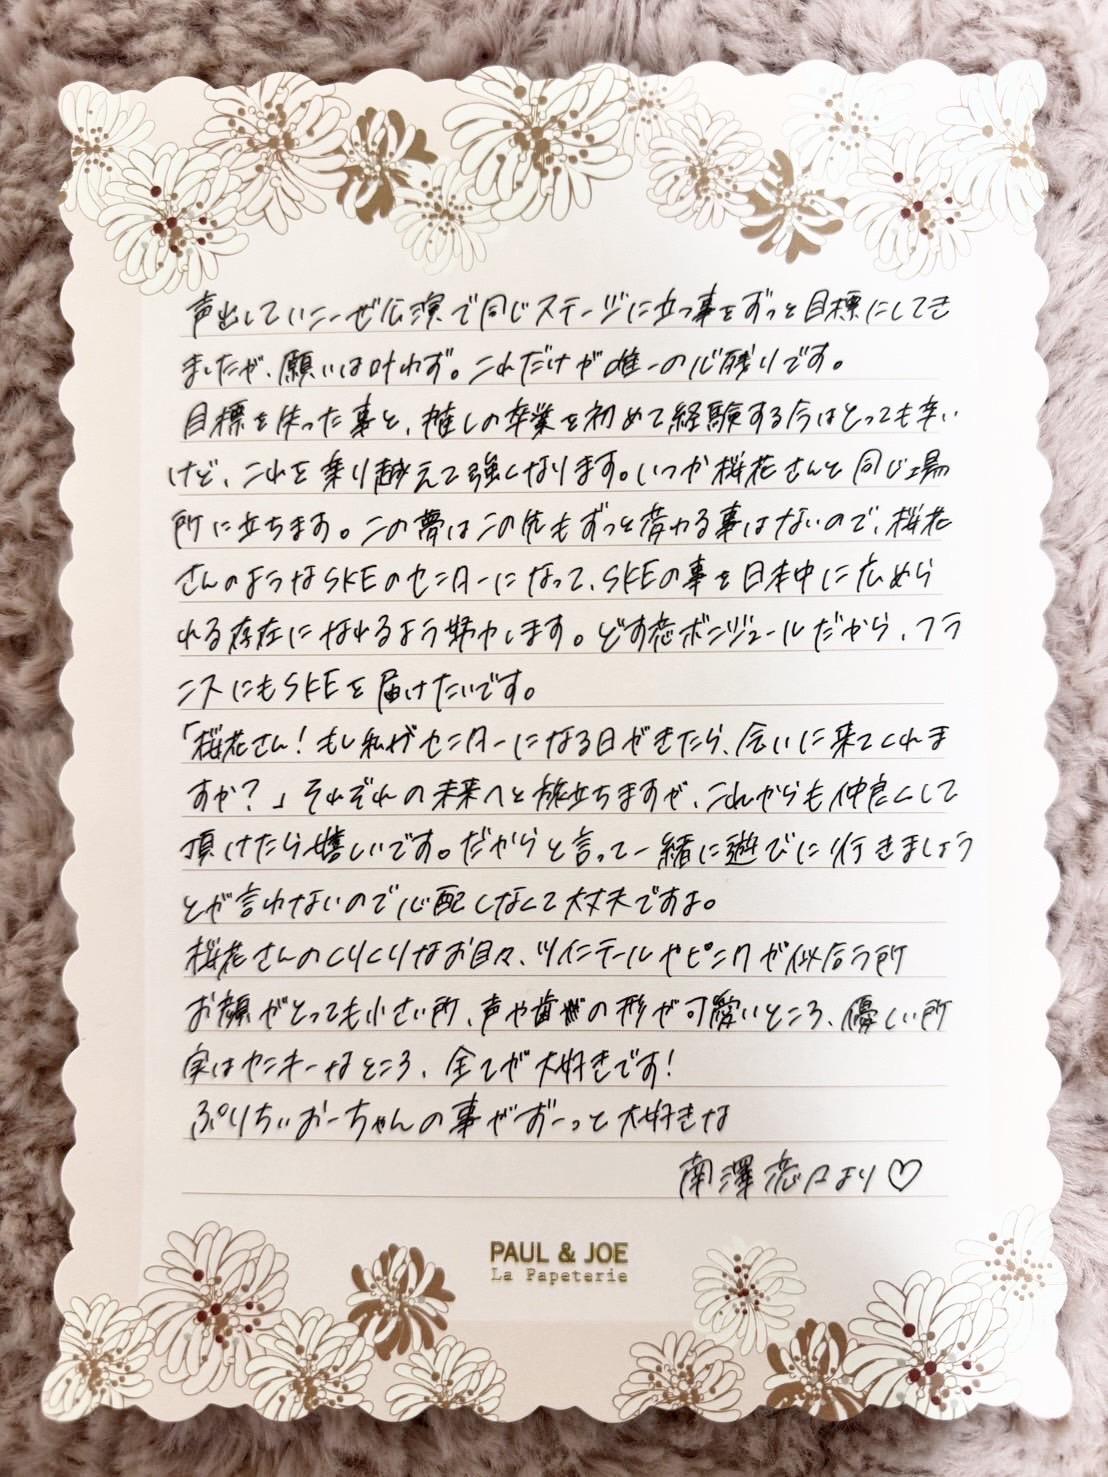 声出していこーぜ公演で同じステージに立つ事をずっと目標にしてき
ましたが、願いは叶わず。これだけが唯一の心残りです。
目標を失った事と、推しの卒業を初めて経験する今はとっても辛い
けど、これを乗り越えて強くなります。いつか桜花さんと同じ場
所に立ちます。この夢はこの先もずっと変わる事はないので、桜花
さんのようなSKEのセンターになって、SKEの事を日本中に広めら
れる存在になれるよう努力します。どす恋ボンジュールだから、フラ
ンスにもSKEを届けたいです。
「桜花さん!もし私がセンターになる日がきたら、会いに来てくれま
すか?」それぞれの未来へと旅立ちますが、これからも仲良くして
頂けたら嬉しいです。だからと言って一緒に遊びに行きましょう
とか言わないので心配しなくて大丈夫ですよ。
桜花さんのくりくりなお目々、ツインテールやピンクが似合う所
お顔がとっても小さい所、声や歯の形が可愛いところ、優しい所
実はヤンキーなところ、全てが大好きです!
ぷりちぃおーちゃんの事がずーっと大好きな
南澤恋々より♡
PAUL & JOE
La Papeterie